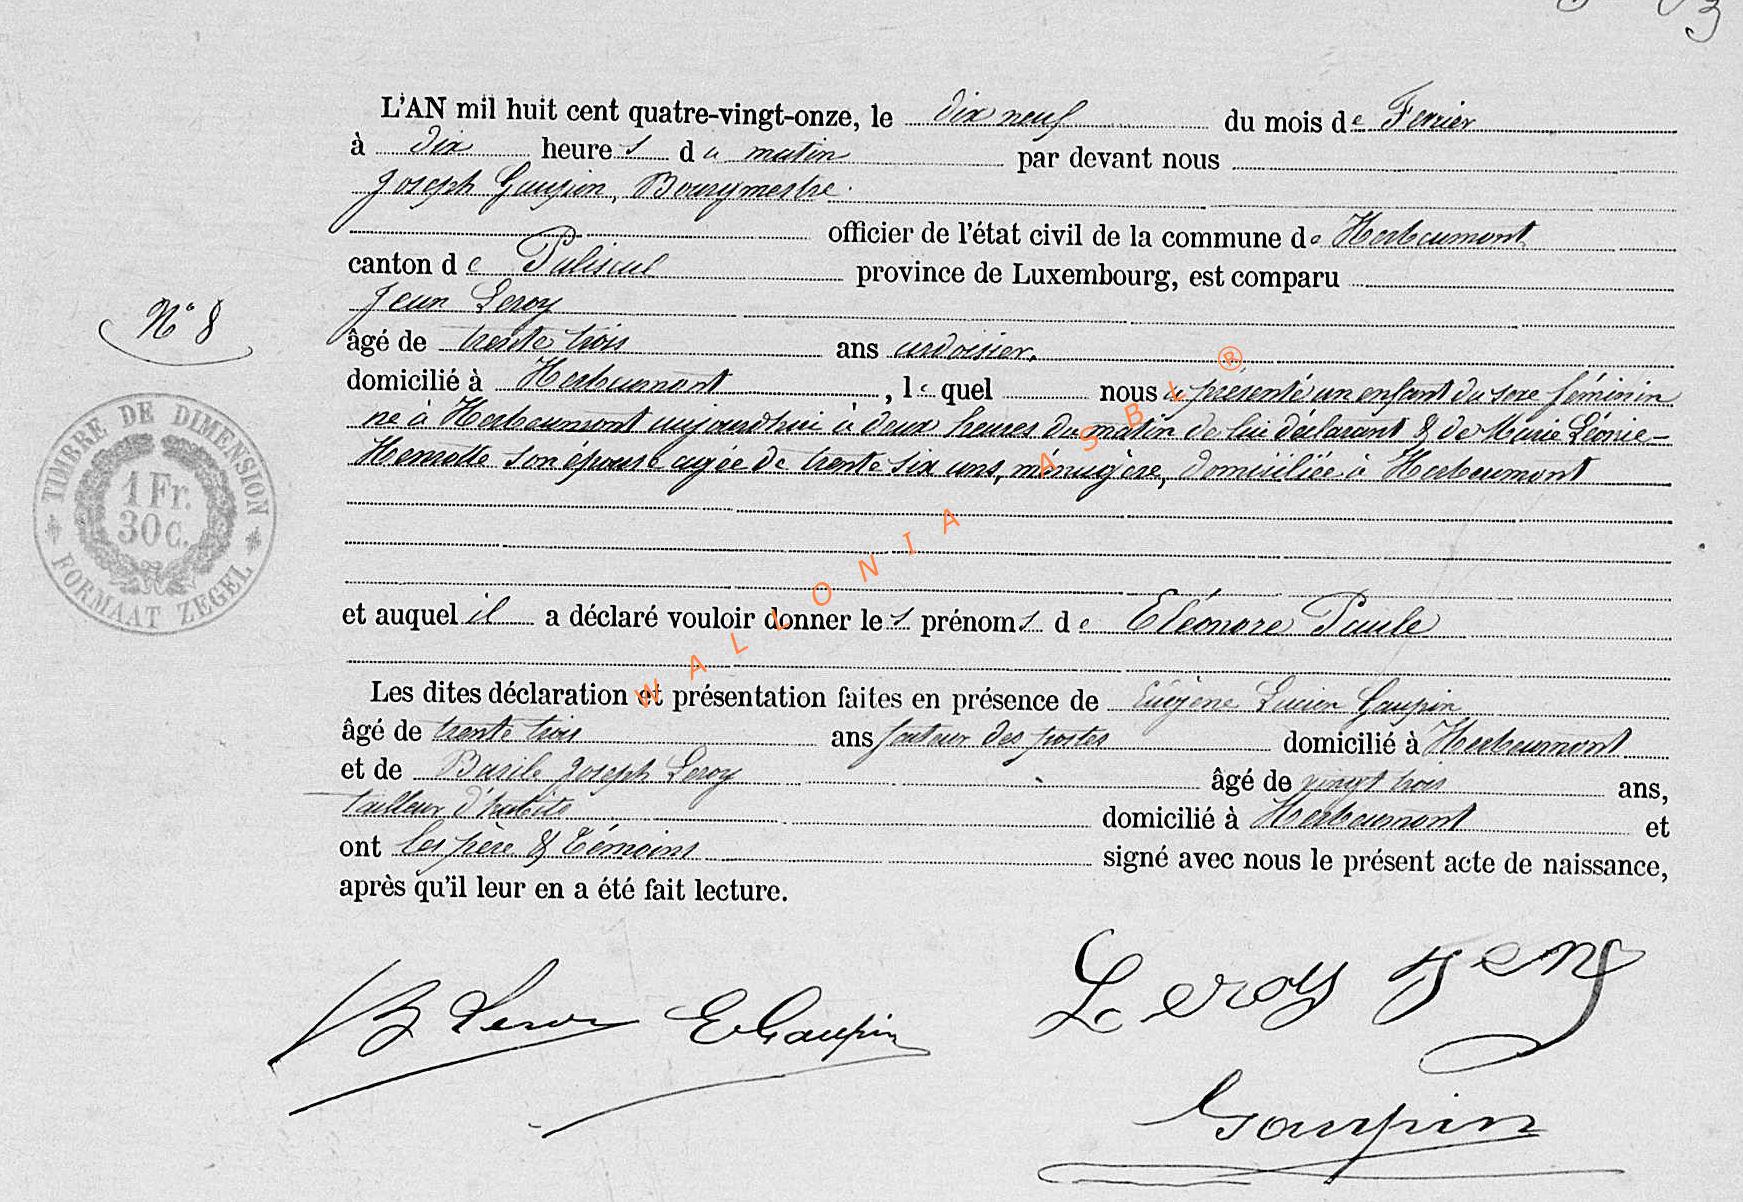 L'AN mil huit cent quatre-vingt-onze, le dix neuf du mois de Fevrier
à dix heures du matin par devant nous
Joseph Gaupin, Bourgmestre.
officier de l'état civil de la commune de Herbeumont
canton de Paliseul province de Luxembourg, est comparu
Jean Leroy
N° 8
âgé de trente trois ans ardoisier,
domicilié à Herbeumont, lequel nous a présenté un enfant du sexe féminin
né à Herbeumont aujourdhui à deux heures du matin de lui déclarant & de Marie Léonie-
son épouse agée de trente six ans, ménagère, domiciliée à Herbeumont
TIMBRE DE DIMENSION
1 Fr.
30c.
FORMAAT ZEGEL
et auquel il a déclaré vouloir donner les prénoms de Eléonore Paule
Les dites déclaration et présentation faites en présence de Eugène Lucien Gaupin
âgé de trente trois ans facteur des postes domicilié à Herbeumont
et de Basile Joseph Leroy âgé de vingt trois ans,
tailleur d'habits domicilié à Herbeumont et
ont les père & témoins signé avec nous le présent acte de naissance,
après qu'il leur en a été fait lecture.
B Leroy E Gaupin Leroy Jean
Gaupin
WALLONIA ASBL ®